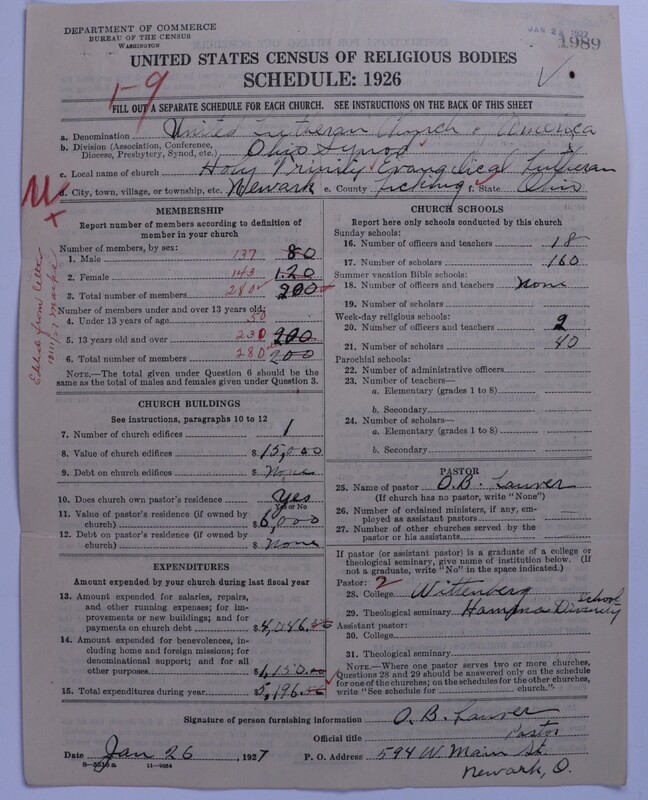 DEPARTMENT OF COMMERCE
BUREAU OF THE CENSUS
WASHINGTON
JAN 2 1927
1989
UNITED STATES CENSUS OF RELIGIOUS BODIES
SCHEDULE: 1926
1-9
FILL OUT A SEPARATE SCHEDULE FOR EACH CHURCH. SEE INSTRUCTIONS ON THE BACK OF THIS SHEET
a. Denomination United Lutheran Church of America
b. Division (Association, Conference, Diocese, Presbytery, Synod, etc.) Ohio Synod
c. Local name of church Holy Trinity Evangelical Lutheran
d. City, town, village, or township, etc. Newark e. County Licking f. State Ohio
MEMBERSHIP
Report number of members according to definition of member in your church
Number of members, by sex:
1. Male 137 80
2. Female 143 120
3. Total number of members 280 200
Number of members under and over 13 years old:
4. Under 13 years of age 50
5. 13 years old and over 230 200
6. Total number of members 280 200
NOTE.—The total given under Question 6 should be the same as the total of males and females given under Question 3.
Edited from letter
CHURCH BUILDINGS
See instructions, paragraphs 10 to 12
7. Number of church edifices 1
8. Value of church edifices $15,000
9. Debt on church edifices $ None
10. Does church own pastor's residence Yes
Yes or No
11. Value of pastor's residence (if owned by church) $6,000
12. Debt on pastor's residence (if owned by church) $ None
EXPENDITURES
Amount expended by your church during last fiscal year
13. Amount expended for salaries, repairs, and other running expenses; for improvements or new buildings; and for payments on church debt $4,046.00
14. Amount expended for benevolences, including home and foreign missions; for denominational support; and for all other purposes $1,150.00
15. Total expenditures during year $5,196.00
CHURCH SCHOOLS
Report here only schools conducted by this church
Sunday schools:
16. Number of officers and teachers 18
17. Number of scholars 160
Summer vacation Bible schools:
18. Number of officers and teachers None
19. Number of scholars
Week-day religious schools:
20. Number of officers and teachers 2
21. Number of scholars 40
Parochial schools:
22. Number of administrative officers
23. Number of teachers—
a. Elementary (grades 1 to 8)
b. Secondary
24. Number of scholars—
a. Elementary (grades 1 to 8)
b. Secondary
PASTOR
25. Name of pastor O. B. Lauver
(If church has no pastor, write "None")
26. Number of ordained ministers, if any, employed as assistant pastors
27. Number of other churches served by the pastor or his assistants
If pastor (or assistant pastor) is a graduate of a college or theological seminary, give name of institution below. (If not a graduate, write "No" in the space indicated.)
Pastor: 2
28. College Wittenberg
29. Theological seminary Hamma Divinity School
Assistant pastor:
30. College
31. Theological seminary
NOTE.—Where one pastor serves two or more churches, Questions 28 and 29 should be answered only on the schedule for one of the churches; on the schedules for the other churches, write "See schedule for church."
Signature of person furnishing information O. B. Lauver
Official title Pastor
Date Jan 26, 1927 P. O. Address 594 W. Main St.
Newark, O.
8-5516a 11-9084